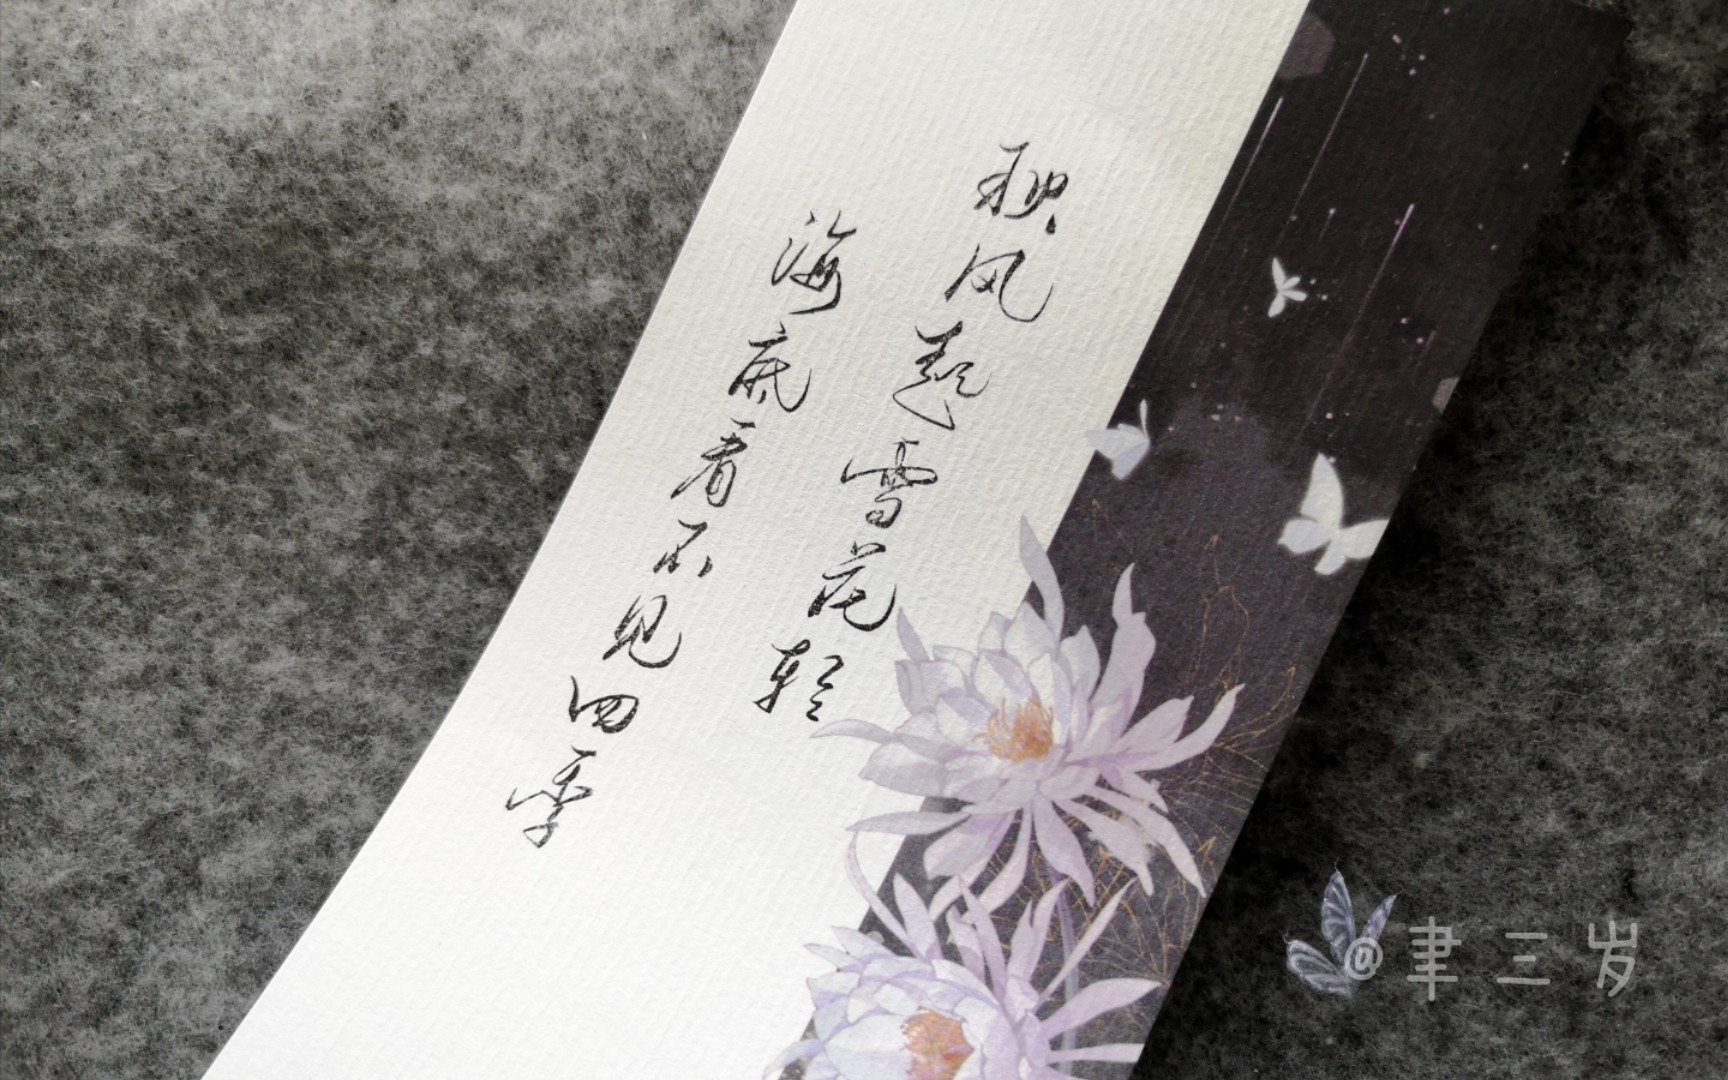 秋风起雪花轻
海底看不见四季
@聿三岁